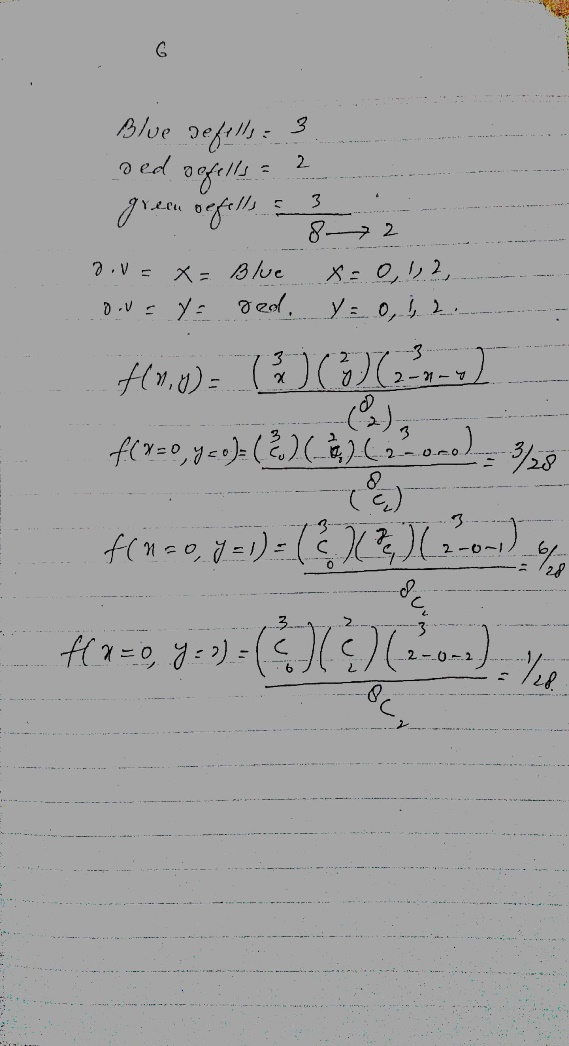 6
Blue refills = 3
red refills = 2
green refills = 3
8 → 2
r.v = X = Blue X = 0, 1, 2,
r.v = Y = red. Y = 0, 1, 2.
f(x,y) = (3 x)(2 y)(3 2-x-y) / (8 2)
f(x=0, y=0) = (3C0)(2C0)(3 2-0-0) / (8C2) = 3/28
f(x=0, y=1) = (3C0)(2C1)(3 2-0-1) / 8C2 = 6/28
f(x=0, y=2) = (3C0)(2C2)(3 2-0-2) / 8C2 = 1/28.